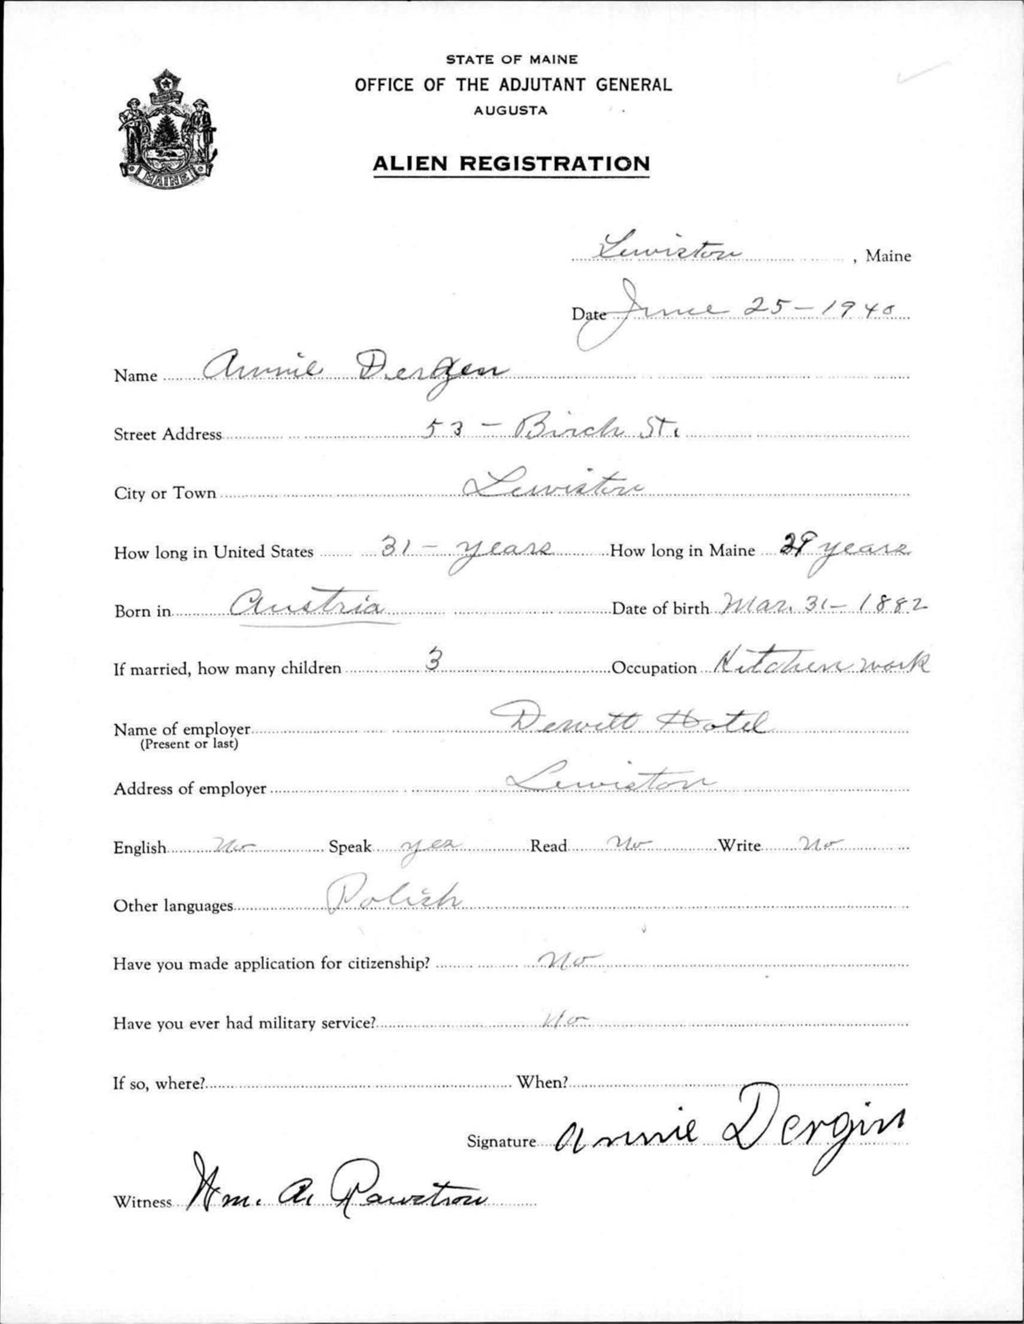 STATE OF MAINE
OFFICE OF THE ADJUTANT GENERAL
AUGUSTA
ALIEN REGISTRATION
MAINE
Lewiston, Maine
Date June 25-1940
Name Annie Dergen
Street Address 53 - Birch St.
City or Town Lewiston
How long in United States 31 - years How long in Maine 29 years
Born in Austria Date of birth Mar. 31- 1882
If married, how many children 3 Occupation Kitchen work
Name of employer Dewitt Hotel
(Present or last)
Address of employer Lewiston
English No Speak yes Read No Write No
Other languages Polish
Have you made application for citizenship? No
Have you ever had military service? No
If so, where? When?
Signature Annie Dergin
Witness Wm. A. Rawstron